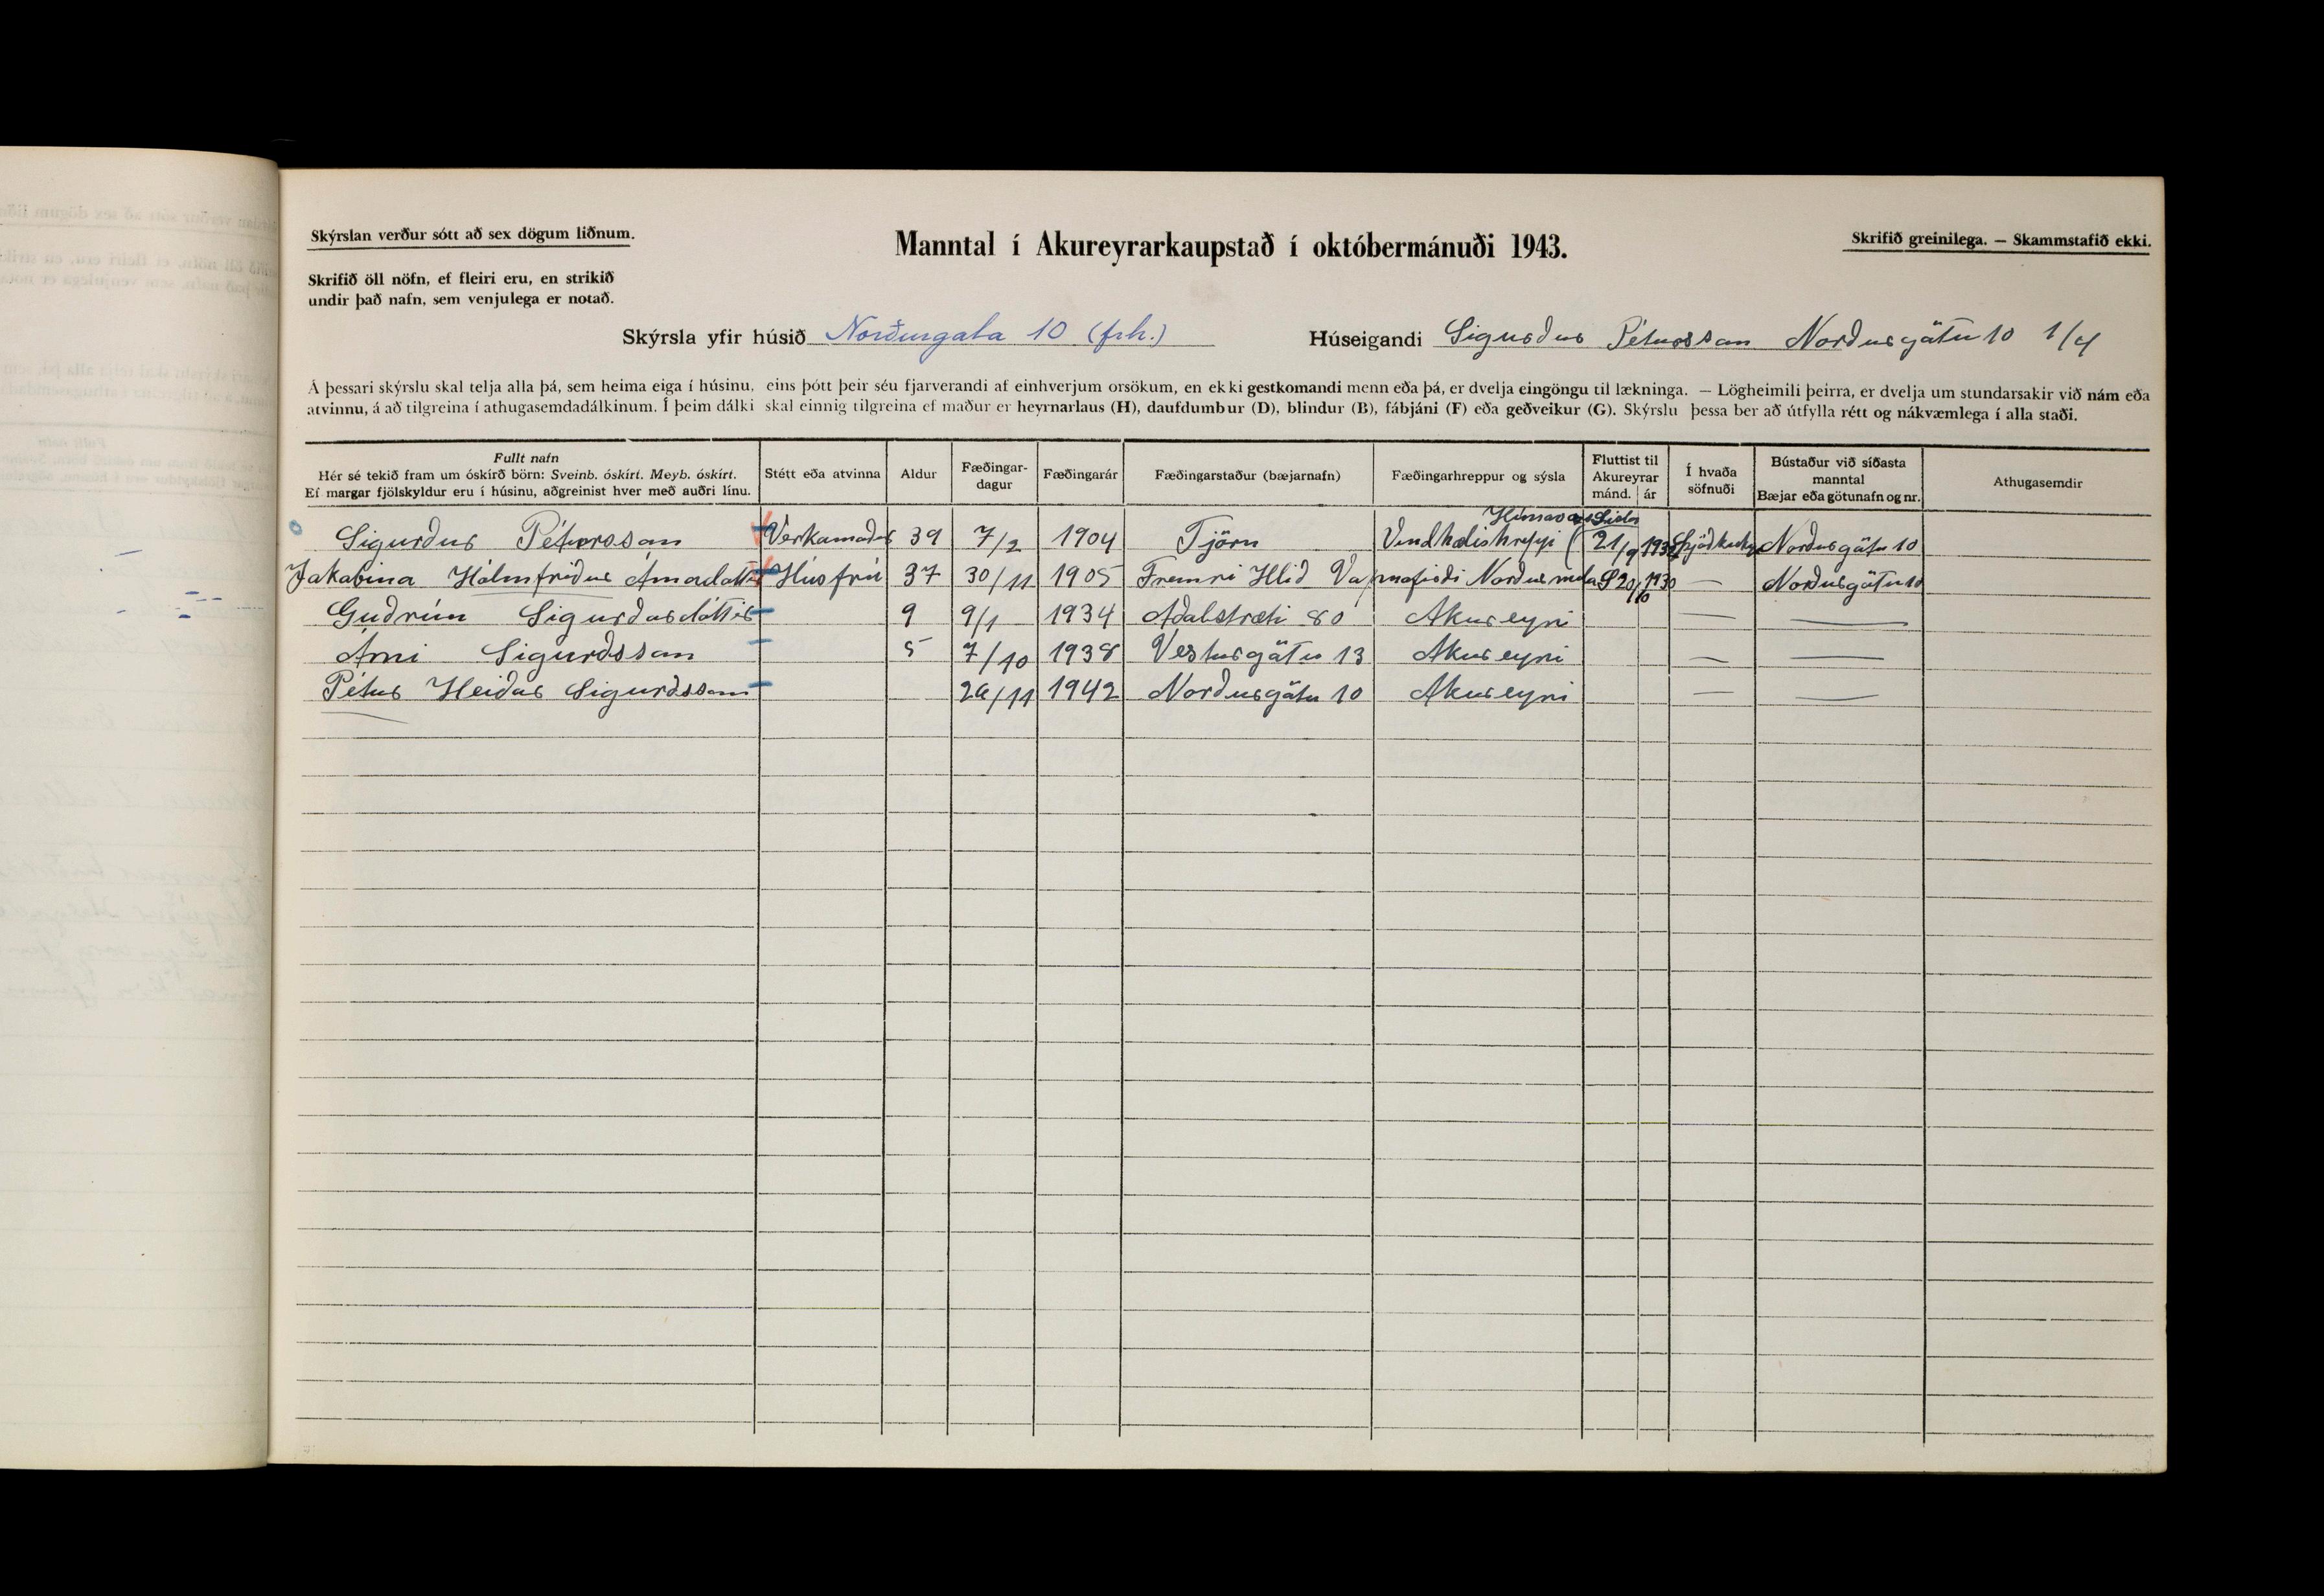 Skýrslan verður sótt að sex dögum liðnum.
Manntal í Akureyrarkaupstað í októbermánuði 1943.
Skrifið greinilega. — Skammstafið ekki.
Skrifið öll nöfn, ef fleiri eru, en strikið
undir það nafn, sem venjulega er notað.
Skýrsla yfir húsið Norðurgata 10 (frh.) Húseigandi Sigurður Pétursson Norðurgötu 10 1/4
Á þessari skýrslu skal telja alla þá, sem heima eiga í húsinu, eins þótt þeir séu fjarverandi af einhverjum orsökum, en ekki gestkomandi menn eða þá, er dvelja eingöngu til lækninga. — Lögheimili þeirra, er dvelja um stundarsakir við nám eða
atvinnu, á að tilgreina í athugasemdadálkinum. Í þeim dálki skal einnig tilgreina ef maður er heyrnarlaus (H), daufdumbur (D), blindur (B), fábjáni (F) eða geðveikur (G). Skýrslu þessa ber að útfylla rétt og nákvæmlega í alla staði.
Fullt nafn
Hér sé tekið fram um óskírð börn: Sveinb. óskírt. Meyb. óskírt.
Ef margar fjölskyldur eru í húsinu, aðgreinist hver með auðri línu.
Stétt eða atvinna
Aldur
Fæðingar-
dagur
Fæðingarár
Fæðingarstaður (bæjarnafn)
Fæðingarhreppur og sýsla
Fluttist til
Akureyrar
mánd. ár
Í hvaða
söfnuði
Bústaður við síðasta
manntal
Bæjar eða götunafn og nr.
Athugasemdir
Sigurður Pétursson Verkamaður 39 7/2 1904 Tjörn Vindhælishreppi 21/9 Norðurgötu 10
Jakabína Hólmfríður Árnadóttir Húsfrú 37 30/11 1905 Fremri Hlíð Vapnafirði Norðurmúla S 20/10 1930 — Norðurgötu 10
Guðrún Sigurðardóttir 9 9/1 1934 Aðalstræti 80 Akureyri — —
Árni Sigurðsson 5 7/10 1938 Vesturgötu 13 Akureyri — —
Pétur Heiðar Sigurðsson — /11 1942 Norðurgötu 10 Akureyri — —